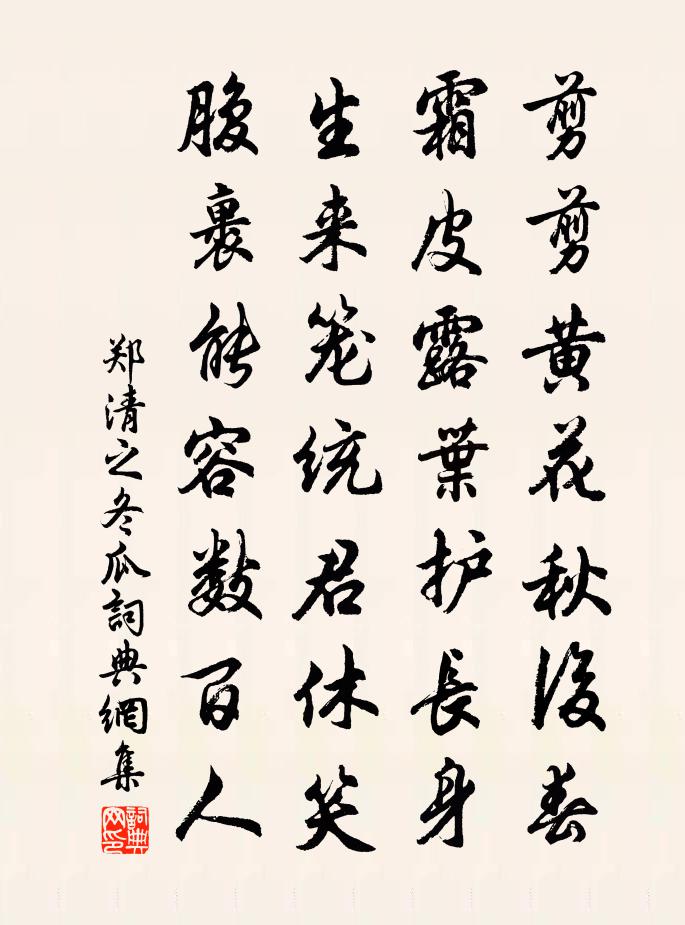 剪剪黄花秋後春
霜皮露葉护長身
生来笼统君休笑
腹裹能容数百人
郑清之冬瓜詞典網集
詞典网印